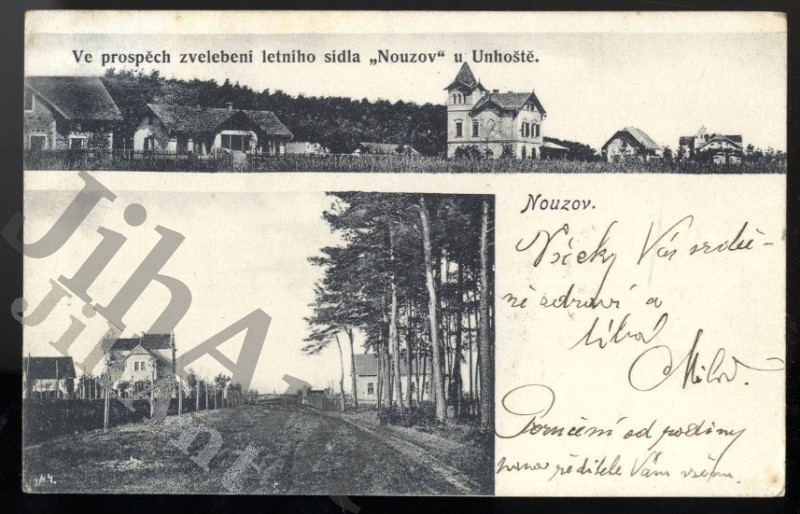 Ve prospěch zvelebení letního sídla „Nouzov“ u Unhoště.
Nouzov.
Všecky Vás srdě-
ně zdraví a
líbá
Miloš.
Poručení od rodiny
pana ředitele Vám všem.
JihA
Ji